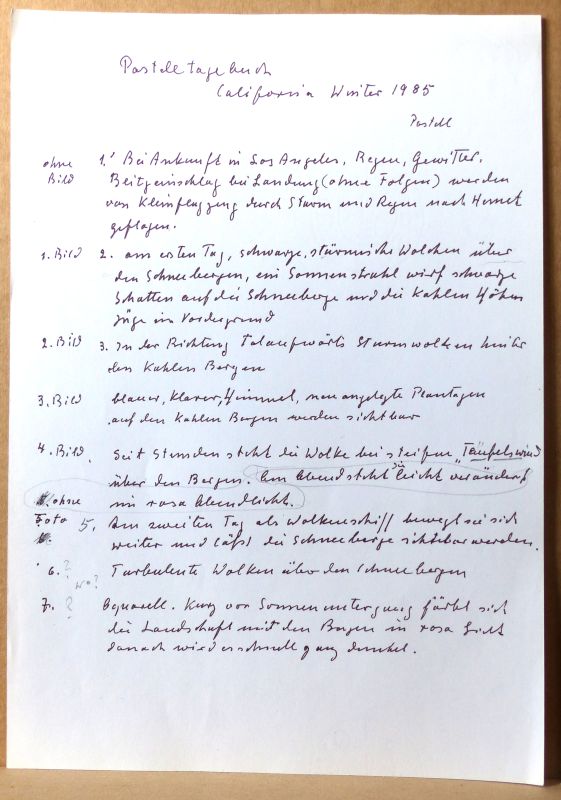 Pastelltagebuch
California Winter 1985
Pastell
ohne Bild 1. Bei Ankunft in Los Angeles, Regen, Gewitter.
Blitzeinschlag bei Landung (ohne Folgen) werden
von Kleinflugzeug durch Sturm und Regen nach Hemet
geflogen.
1. Bild 2. am ersten Tag, schwarze, stürmische Wolken über
den Schneebergen, ein Sonnenstrahl wirft schwarze
Schatten auf die Schneeberge und die kahlen Höhen
züge im Vordergrund
2. Bild 3. In der Richtung Talaufwärts Sturmwolken hinter
den kahlen Bergen
3. Bild blauer, klarer, Himmel, neu angelegte Plantagen
auf den kahlen Bergen werden sichtbar
4. Bild. Seit Stunden steht die Wolke bei steifem "Teufelswind
über den Bergen. Am Abend steht sie leicht verändert
ohne im rosa Abendlicht.
Foto 5. Am zweiten Tag als Wolkenschiff bewegt sie sich
weiter und läßt die Schneeberge sichtbar werden.
6. ? wo? Turbulente Wolken über den Schneebergen
7. ? Aquarell. Kurz vor Sonnenuntergang färbt sich
die Landschaft mit den Bergen in rosa Licht
danach wird es schnell ganz dunkel.